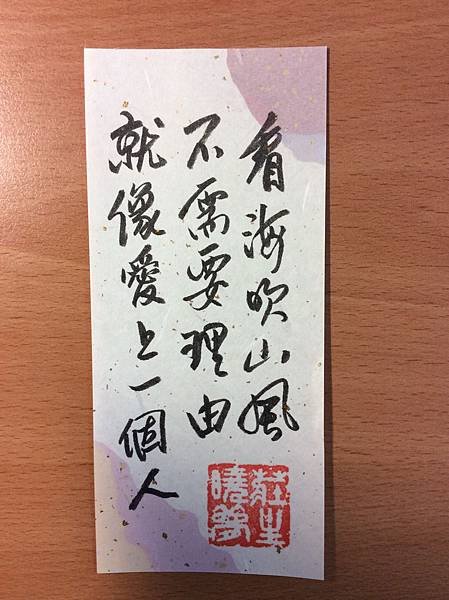 看海吹山風
不需要理由
就像愛上一個人
莊生曉夢